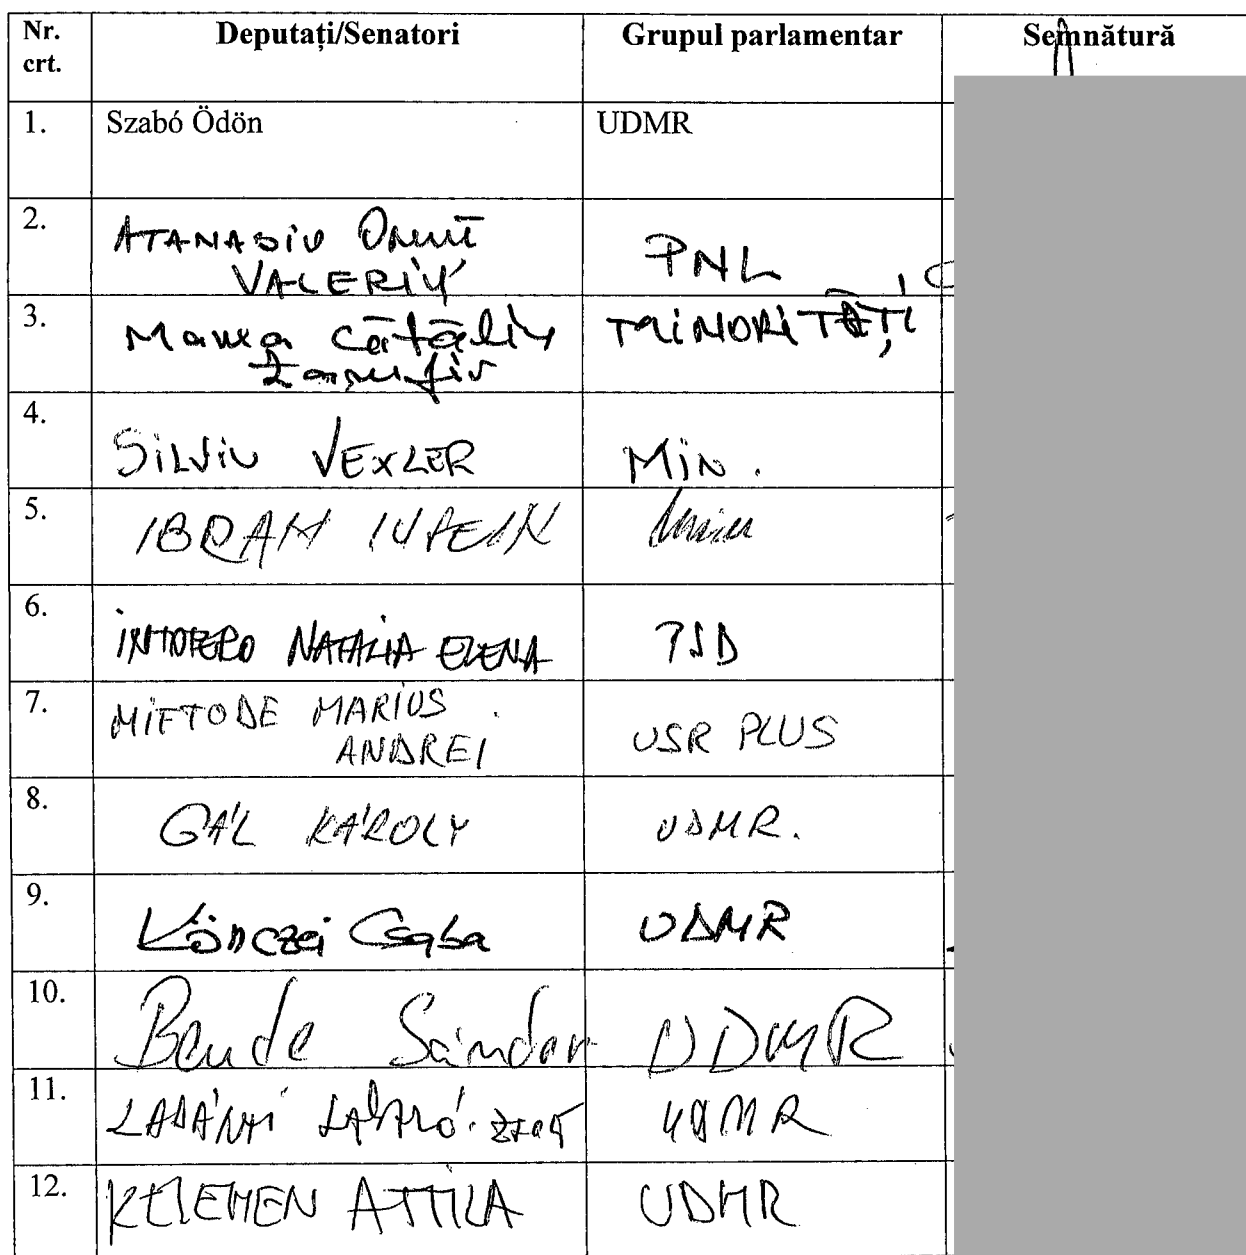 Nr. crt. Deputați/Senatori Grupul parlamentar Semnătură
1. Szabó Ödön UDMR
2. ATANASIU VALERIU PNL
3. Manea Cătălin Zamfir MINORITĂȚI
4. SiLViU VEXLER MiN.
5. IBRAM IUSEIN
6. INTOTERO NATALIA ELENA PSD
7. MIFTODE MARIUS ANDREI USR PLUS
8. GÁL KÁROLY UDMR.
9. Könczei Csaba UDMR
10. Bende Sándor UDMR
11. LADÁNYI LÁSZLÓ-ZSOLT UDMR
12. KELEMEN ATTILA UDMR